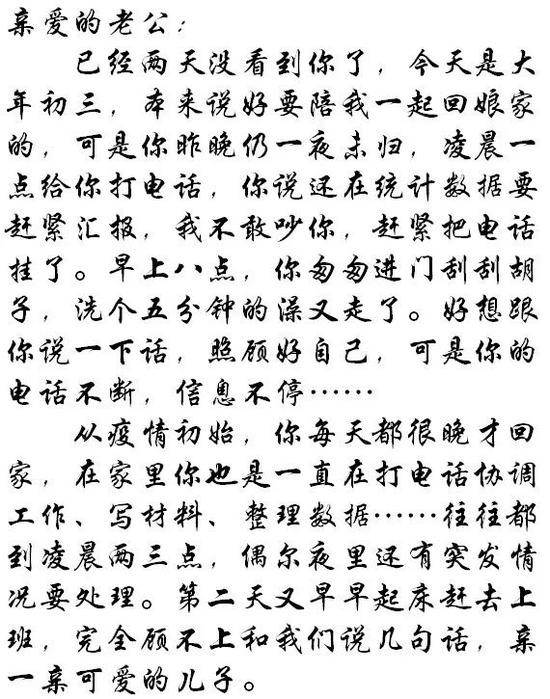 亲爱的老公：
已经两天没看到你了，今天是大
年初三，本来说好要陪我一起回娘家
的，可是你昨晚仍一夜未归，凌晨一
点给你打电话，你说还在统计数据要
赶紧汇报，我不敢吵你，赶紧把电话
挂了。早上八点，你匆匆进门刮刮胡
子，洗个五分钟的澡又走了。好想跟
你说一下话，照顾好自己，可是你的
电话不断，信息不停……
从疫情初始，你每天都很晚才回
家，在家里你也是一直在打电话协调
工作、写材料、整理数据……往往都
到凌晨两三点，偶尔夜里还有突发情
况要处理。第二天又早早起床赶去上
班，完全顾不上和我们说几句话，亲
一亲可爱的儿子。